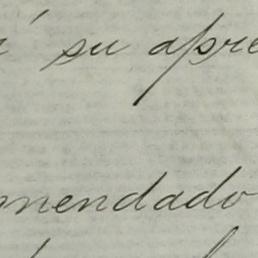 su apre
mendado